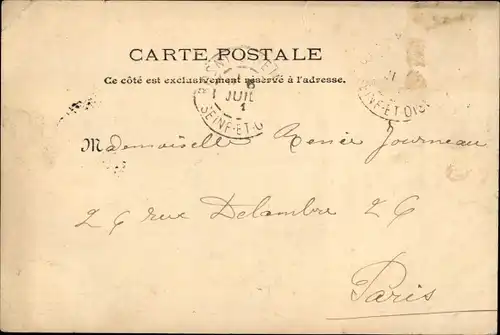 CARTE POSTALE
Ce côté est exclusivement réservé à l'adresse.
JUIL
SEINE-ET-O
SEINE-ET-OISE
Mademoiselle Xenie Journeau
26 rue Delambre 26
Paris